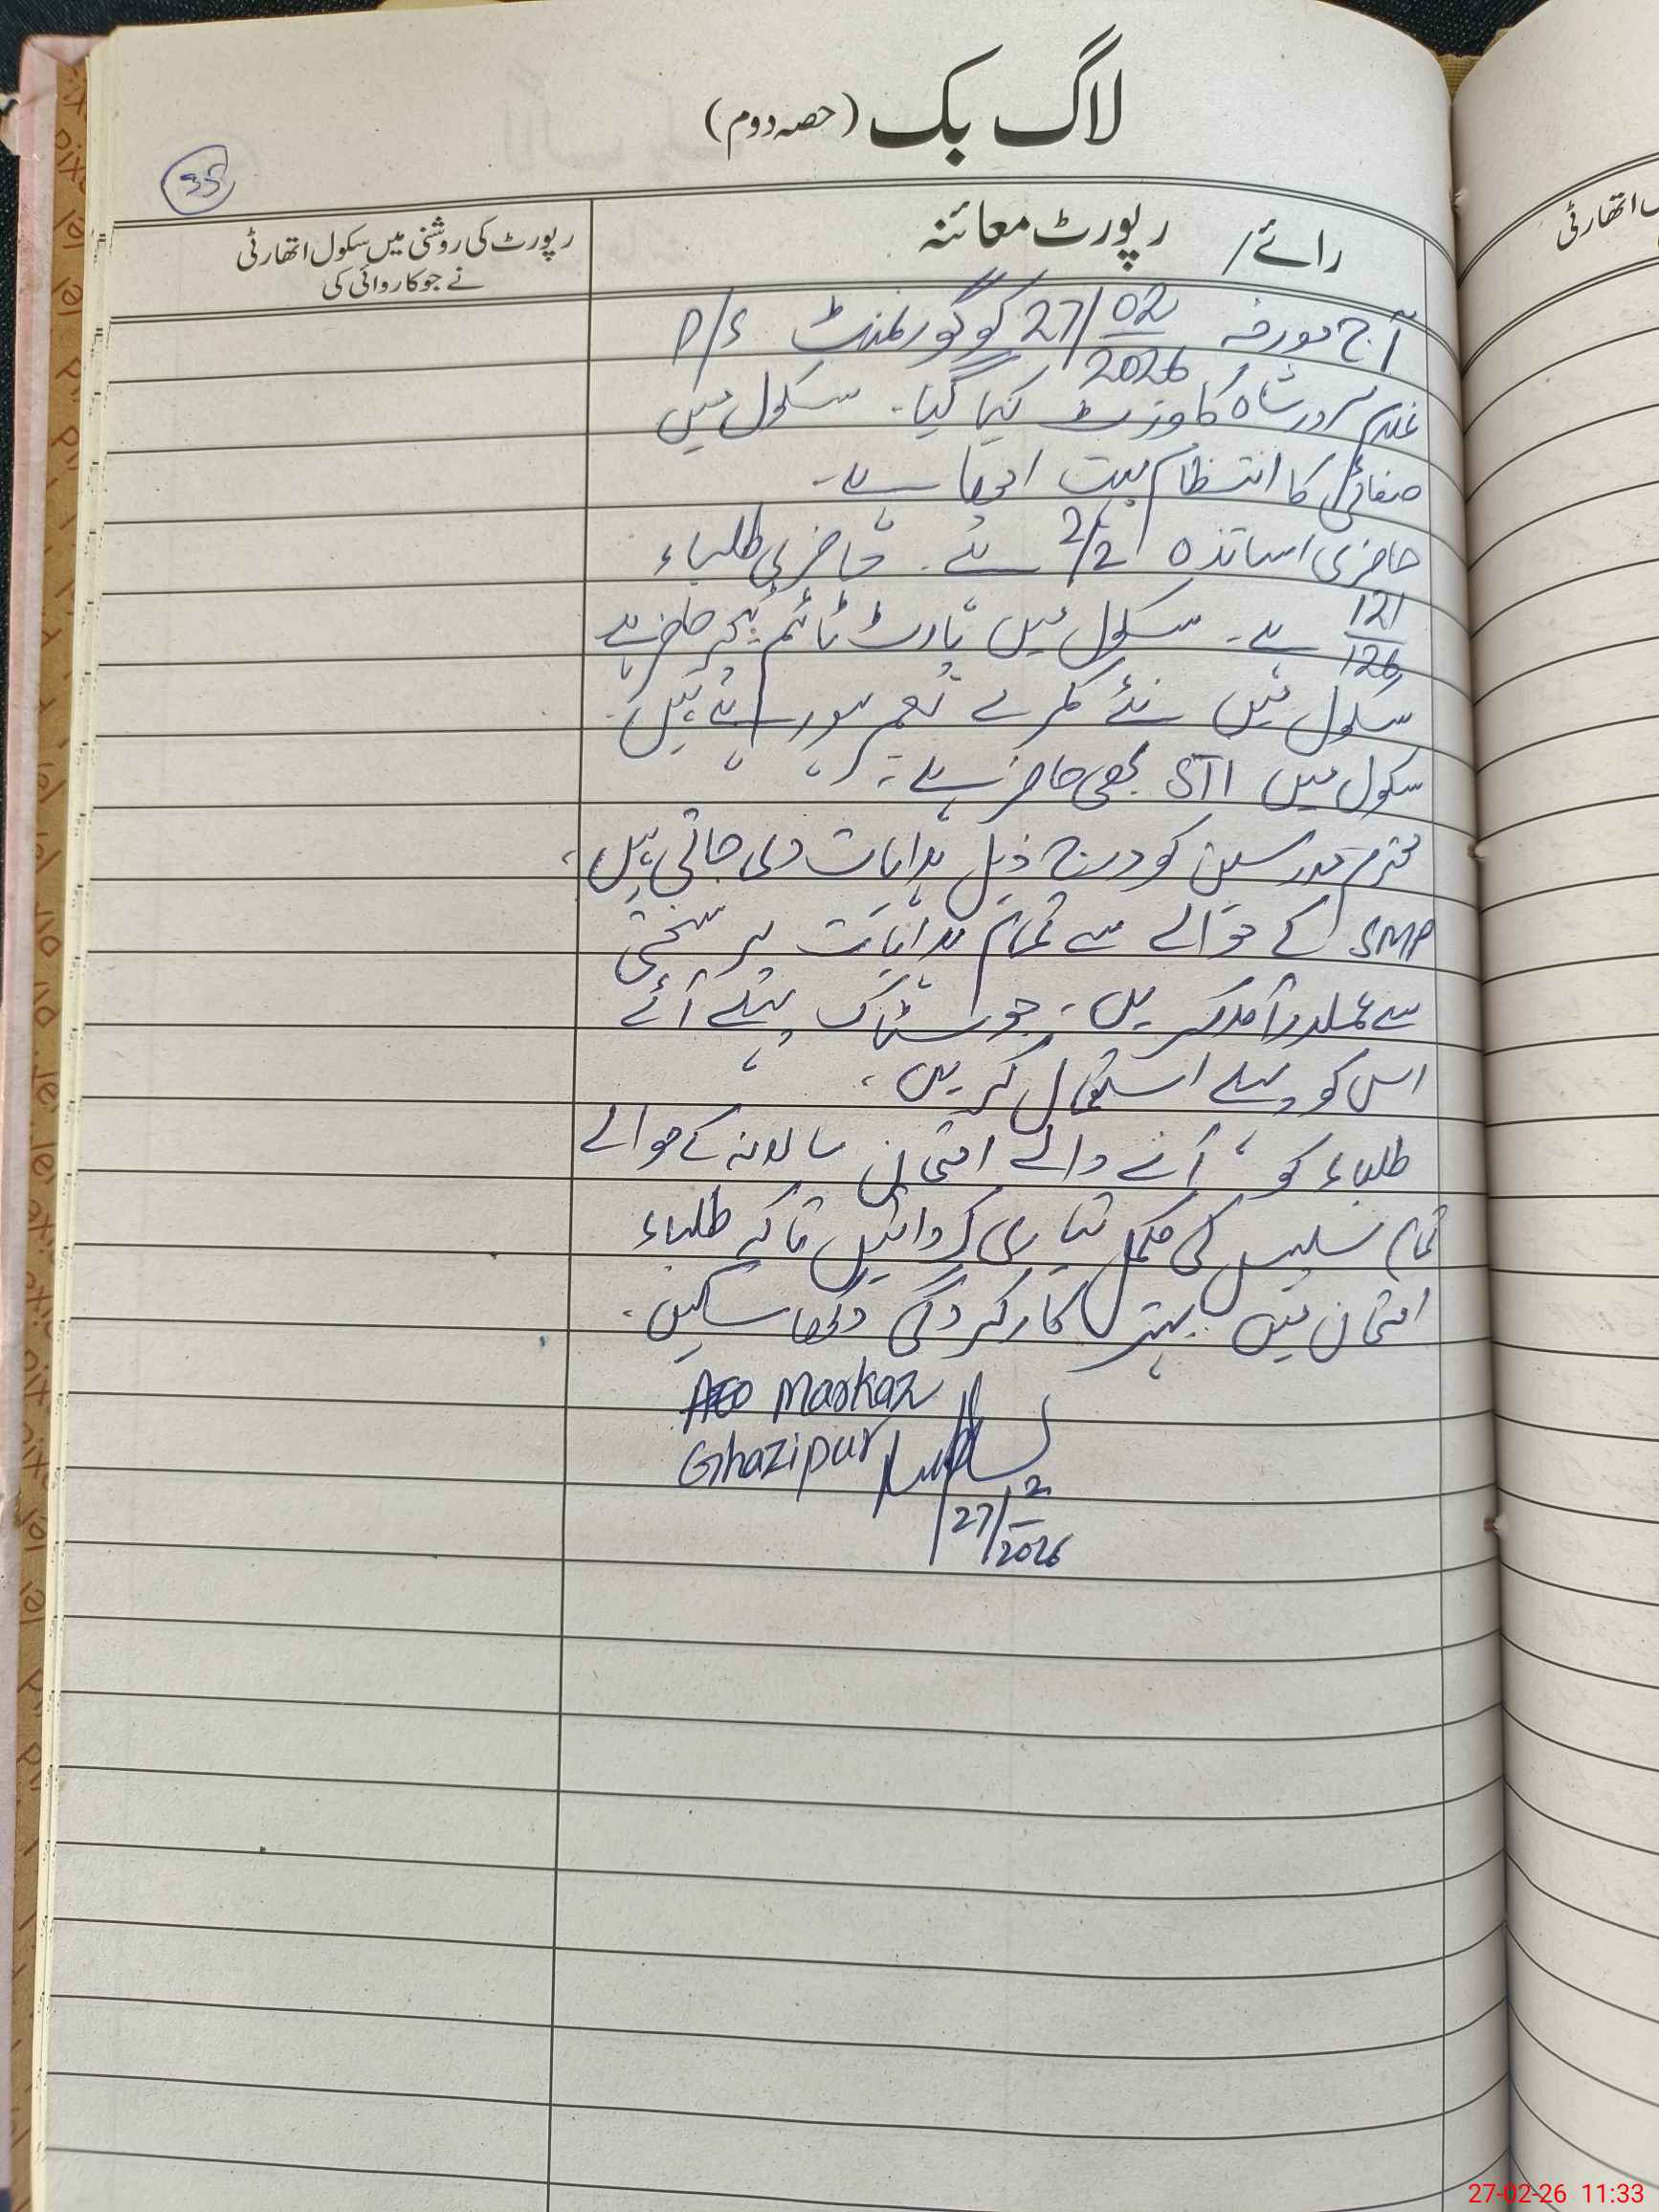 لاگ بک (حصہ دوم)
35
رائے / رپورٹ معائنہ
رپورٹ کی روشنی میں سکول اتھارٹی
نے جو کاروائی کی
آج مورخہ 27/02/2026 کو گورنمنٹ P/S
سرور شاہ کا وزٹ کیا گیا۔ سکول میں
صفائی کا انتظام بہت اچھا ہے۔
حاضری اساتذہ 2/2 ہے۔ حاضری طلباء
121/126 ہے۔ سکول میں پارٹ ٹائم ٹیچر حاضر ہے
سکول میں نئے کمرے تعمیر ہو رہے ہیں۔
سکول میں STI بھی حاضر ہے۔
محترم مدرسین کو درج ذیل ہدایات دی جاتی ہیں۔
SMP کے حوالے سے تمام ہدایات پر سختی
سے عملدرآمد کریں۔ جو سٹاک پہلے آئے
اس کو پہلے استعمال کریں۔
طلباء کو، آنے والے امتحان سالانہ کے حوالے
تمام سلیبس کی مکمل تیاری کروائیں تاکہ طلباء
امتحان میں بہتر کارکردگی دکھا سکیں۔
AEO Markaz
Ghazipur
27/2/2026
اتھارٹی
27-02-26 11:33